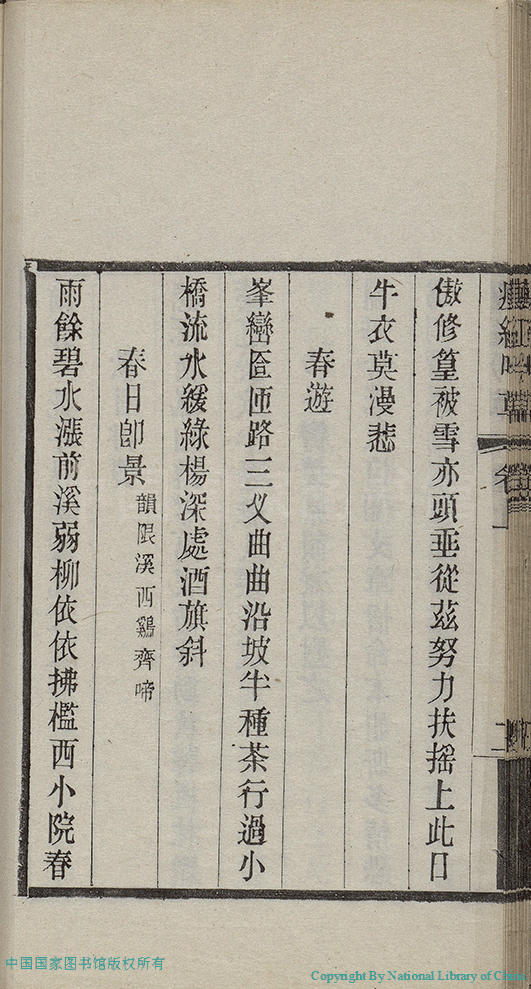 傲修篁被雪亦頭垂從茲努力扶摇上此日
牛衣莫漫悲
春遊
峯巒匼匝路三义曲曲沿坡半種茶行過小
橋流水緩綠楊深處酒旗斜
春日卽景 韻限溪西鷄齊啼
雨餘碧水漲前溪弱柳依依拂檻西小院春
中国国家图书馆版权所有
Copyright By National Library of China